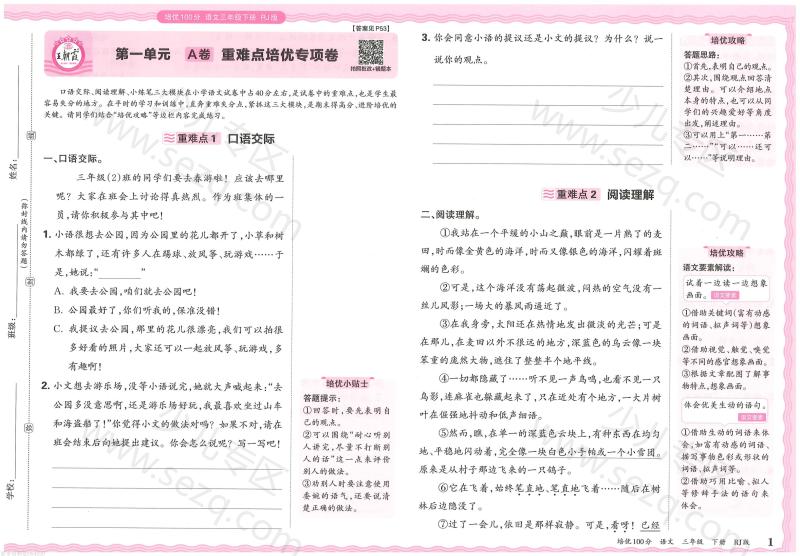 培优100分 语文三年级下册 RJ版
王朝霞
第一单元 A卷 重难点培优专项卷
【答案见P53】
口语交际、阅读理解、小练笔三大模块在小学语文试卷中占40分左右,是试卷中的重难点,也是学生最
容易失分的地方。在平时的学习和训练中,直奔重难失分点,紧抓这三大模块,是期末得高分、进阶培优的
关键。请同学们结合“培优攻略”等边栏内容完成练习。
重难点1 口语交际
一、口语交际。
三年级(2)班的同学们要去春游啦!应该去哪里
呢?大家在班会上讨论得真热烈。作为班集体的一
员,请你积极参与其中吧!
1. 小语很想去公园,因为公园里的花儿都开了,小草和树
木都绿了,还有许多人在踢球、放风筝、玩游戏……于
是,她说:“________”
A. 我要去公园,咱们就去公园吧!
B. 公园最好了,你们听我的,保准没错!
C. 我提议去公园,那里的花儿很漂亮,我们可以拍很
多好看的照片,大家还可以一起放风筝、玩游戏,多
有趣啊!
2. 小文想去游乐场,没等小语说完,她就大声喊起来:“去
公园多没意思啊,还是游乐场好玩,我最喜欢坐过山车
和海盗船了!”你觉得小文的做法对吗?如果不对,请在
班会结束后向她提出建议。你会怎么说呢?写一写吧!
培优小贴士
答题提示:
①回答时,要先表明自
己的观点。
②可以围绕“耐心听别
人讲完,尽量不打断别
人的话”这一点来评价
别人的做法。
③劝别人时要注意使用
委婉的语气,还要说清
楚正确的做法。
3. 你会同意小语的提议还是小文的提议?为什么?说一
说你的观点。
培优攻略
答题思路:
①首先,表明自己的观点。
②其次,围绕观点回答清
楚理由。可以介绍地点
本身的特点,也可以从同
学们的兴趣爱好等角度
出发,阐述理由。
③可以用上“第一……第
二……”“可以……还可
以……”等说明理由。
重难点2 阅读理解
二、阅读理解。
①我站在一个平缓的小山之巅,眼前是一片熟了的麦
田,时而像金黄色的海洋,时而又像银色的海洋,闪耀着斑
斓的色彩。
②可是,这个海洋没有荡起微波,闷热的空气没有一
丝儿风影;一场大的暴风雨逼近了。
③在我身旁,太阳还在热情地发出微淡的光芒;可是
在那儿,在麦田以外不很远的地方,深蓝色的乌云像一块
笨重的庞然大物,遮住了整整半个地平线。
④一切都隐藏了……听不见一声鸟鸣,也看不见一只
鸟影,连麻雀也躲藏起来了,只在近处有个地方,一大片树
叶在倔强地抖动和低声细语。
⑤然而,瞧,在单一的深蓝色云块上,有种东西在均匀
地、平稳地闪动着,完全像一块白色小手帕或一个小雪团。
原来是从村子那边飞来的一只鸽子。
⑥它在飞着,始终笔直地、笔直地飞着……随后在树
林后边隐没了。
⑦过了一会儿,依旧是那样寂静。可是,看呀!已经
培优攻略
语文要素解读:
试着一边读一边想象
画面。语文要素
①借助关键词(富有动感
的词语、拟声词等)想象
画面。
②借助视觉、触觉、嗅觉
等不同的感官想象画面。
③根据文章配图了解事
物特点,想象画面。
体会优美生动的语句。
语文要素
①借助生动的词语来体
会,如富有动感的词语、
描写事物色彩或形状的
词语、拟声词等。
②借助巧用比喻、拟人
等修辞手法的语句来
体会。
培优100分 语文 三年级 下册 RJ版 1
学校:
班级:
姓名:
(弥封线内请勿答题)
少儿专区
www.sezq.com